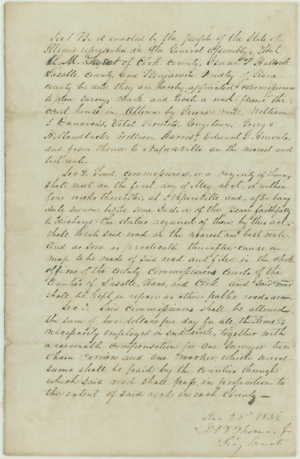 Sec 1 Be it enacted by the people of the State of
Illinois represented in the General Assembly, That
of Cook County, Isaac
Lasalle County and Benjamin of Kane
County be and they are hereby appointed commissioners
to view survey, mark and locate a road from the
court house in Ottawa by William
and from thence to Naperville on the nearest and
best route.
Sec 2. Said commissioners, or a majority of them,
shall meet on the first day of May next, or within
months thereafter, at and, after being
duly sworn before some Justice of the peace faithfully
to the duties required of them by this act,
shall locate said road on the nearest and best route.
And as soon as practicable thereafter cause a
map to be made of said road and filed in the clerk
offices of the County Commissioners Courts of the
Counties of Lasalle, Kane, and Cook and said road
shall be kept in repair as other public roads are.
Sec 3. Said Commissioners shall be allowed
the sum of two dollars per day for all the time
necessarily employed in said work, together with
a reasonable compensation for one Surveyor two
Chain Carriers and one Marker, which several
sums shall be paid by the Counties through
which said road shall pass, in proportion to
the extent of said road in each County
1836
Thomas Jr